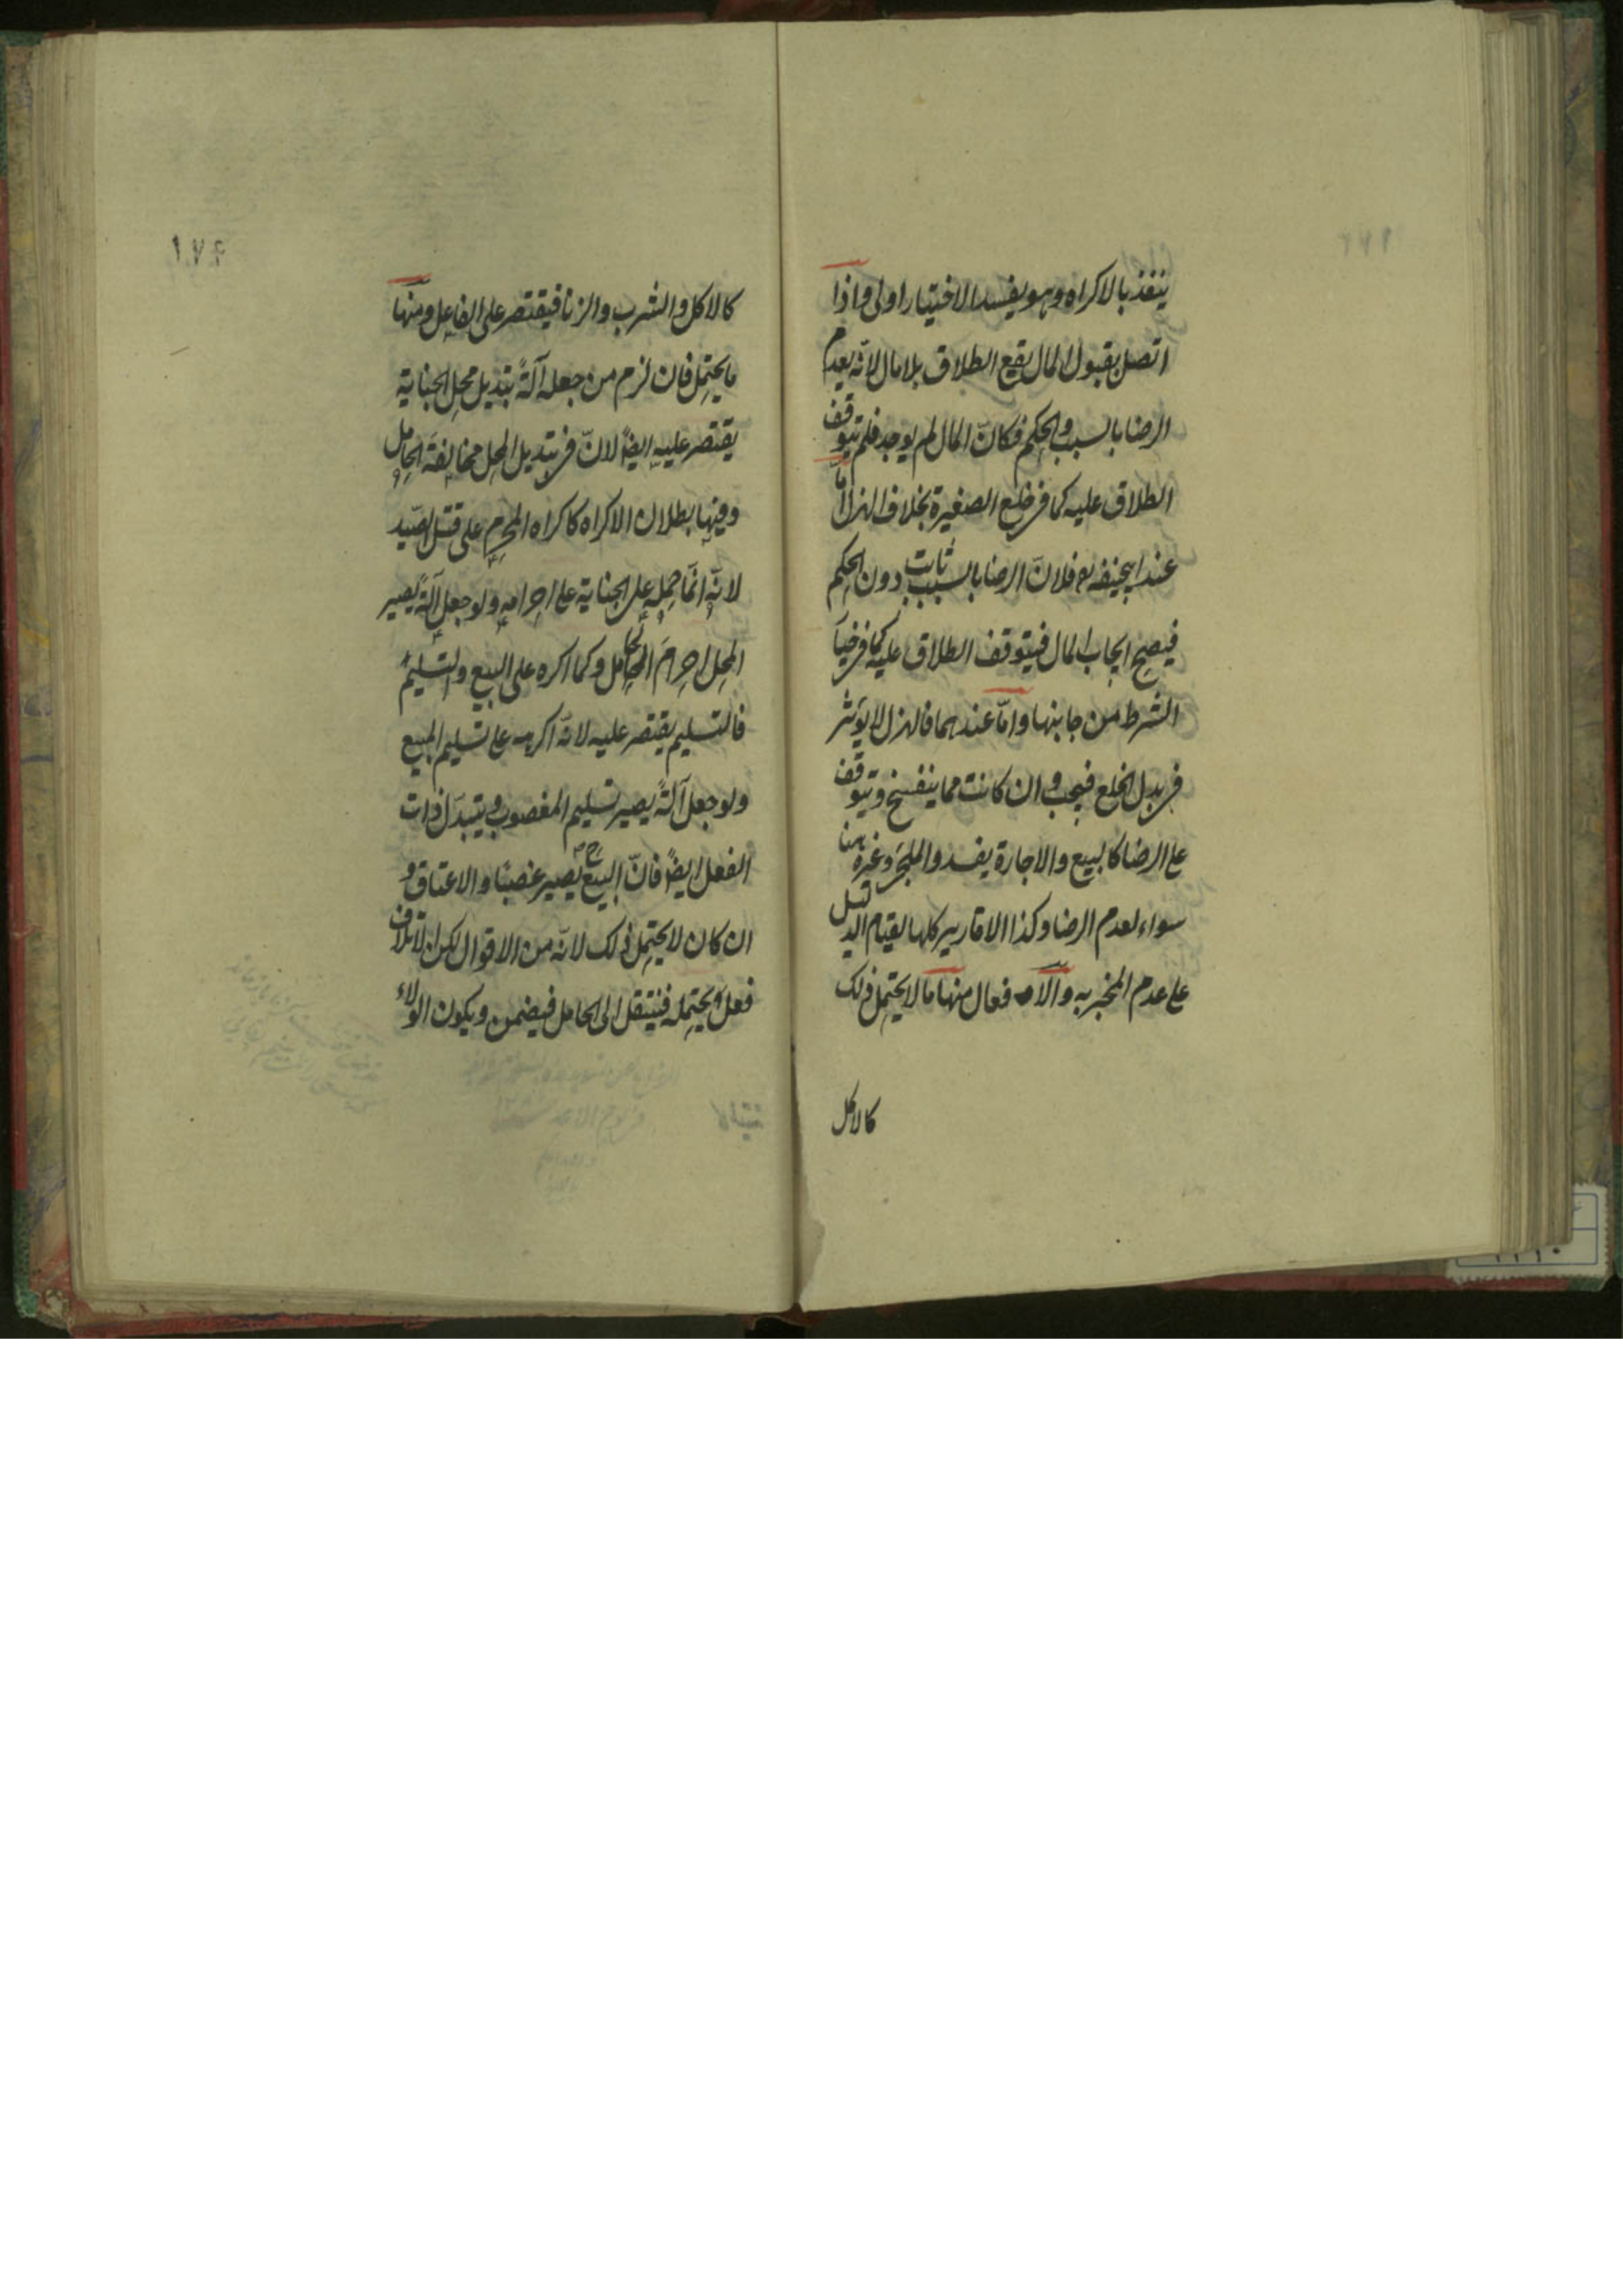 ينفذ بالاكراه وهو يفسد الاختيار اولى واذا
اتصل بقبول المال يقع الطلاق بلا مال لانّه يعدم
الرضا بالسبب والحكم فكانّ المال لم يوجد فلم يتوقف
الطلاق عليه كما فى خلع الصغيرة بخلاف الهزل امّا
عند ابيحنيفه رح فلانّ الرضا بالسبب ثابت دون الحكم
فيصح ايجاب المال فيتوقف الطلاق عليه كما فى خيار
الشرط من جانبها وامّا عندهما فالهزل لا يؤثر
فى بدل الخلع فيجب وان كانت مما ينفسخ ويتوقف
على الرضا كالبيع والاجارة يفسد والملجئ وغيره هنا
سواء لعدم الرضا وكذا الاقارير كلها لقيام الدليل
على عدم المخبر به والافعال منها ما لا يحتمل ذلك
كالاكل
١٧٢
كالاكل والشرب والزنا فيقتصر على الفاعل ومنها
ما يحتمل فان لزم من جعله آلةً تبديل محل الجناية
يقتصر عليه ايضًا لانّ فى تبديل المحل مخالفة الحامل
وفيها بطلان الاكراه كاكراه المحرم على قتل الصّيد
لانّه انّما حمله على الجناية على احرامه ولو جعل آلةً يصير
المحل احرامَ الحامل وكما اكره على البيع والتسليم
فالتسليم يقتصر عليه لانّه اكرهه على تسليم المبيع
ولو جعل آلةً يصير تسليم المغصوب ويتبدّل ذات
الفعل ايضًا فانّ البيع ح يصير غصبًا والاعتاق و
ان كان لا يحتمل ذلك لانّه من الاقوال لكن الاتلاف
فعل يحتمله فينتقل الى الحامل فيضمن ويكون الولاء